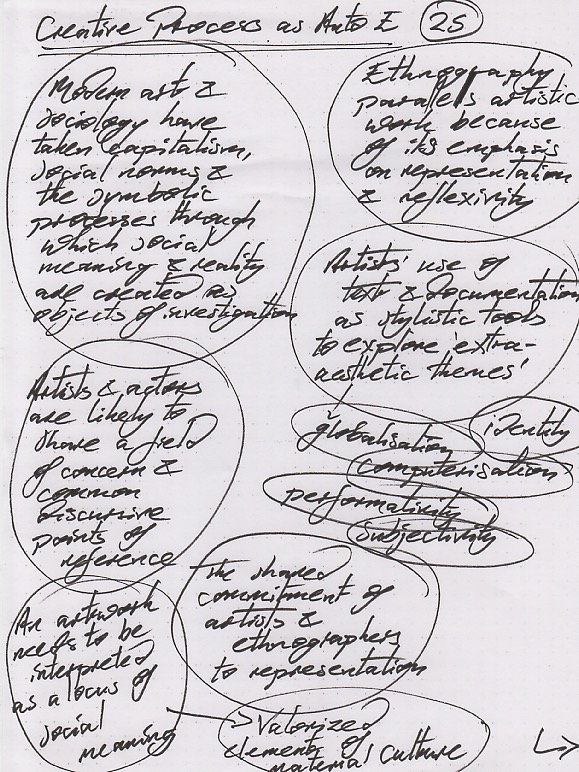 Creative Process as Auto E 25
Modern art &
sociology have
taken capitalism,
social norms &
the symbolic
processes through
which social
meaning & reality
are created as
objects of investigation
Ethnography
parallels artistic
work because
of its emphasis
on representation
& reflexivity
Artists' use of
text & documentation
as stylistic tools
to explore 'extra-
aesthetic themes'
globalisation
identity
computerisation
performativity
subjectivity
Artists & actors
are likely to
share a field
of concern &
common
discursive
points of
reference
the shared
commitment of
artists &
ethnographers
to representation
An artwork
needs to be
interpreted
as a locus of
social
meaning
Valorized
elements of
material culture